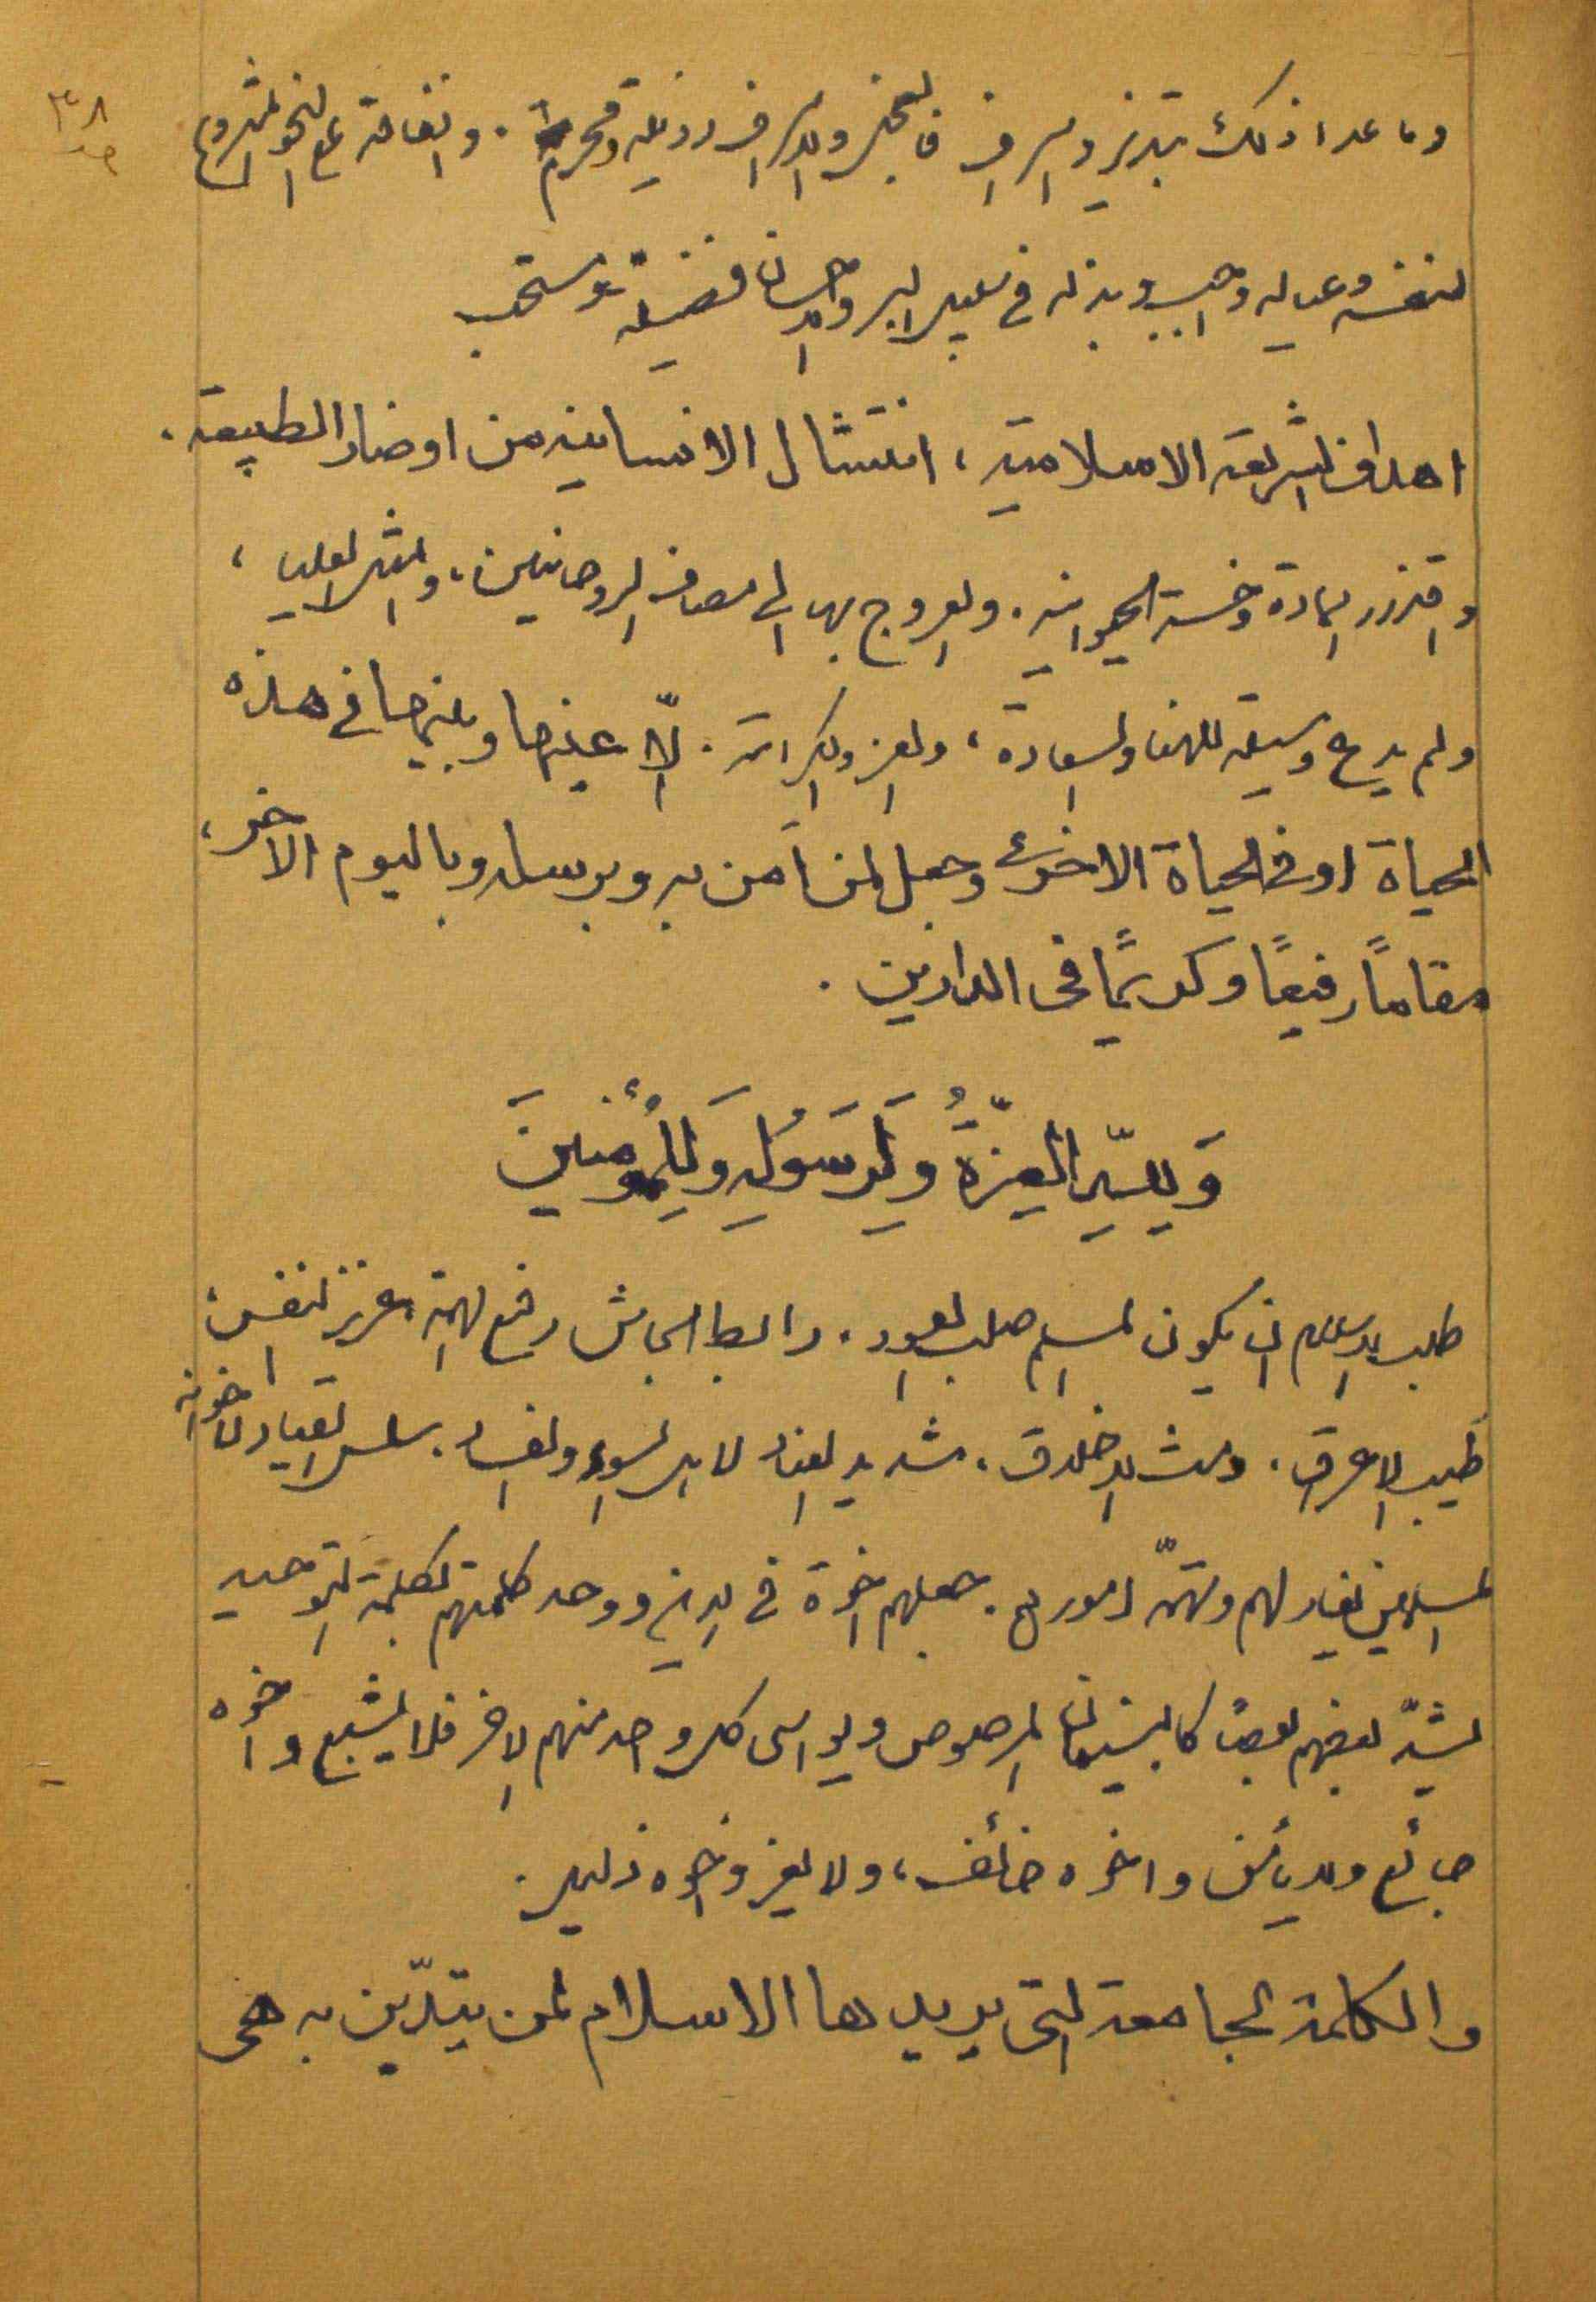 ٣٨
وما عدا ذلك تبذير واسراف فالبخل والاسراف رذيلة ومحرم. وانفاقه على النحو المشروع
لنفسه وعياله واجب وبذله في سبيل البر والاحسان فضيلة ومستحب
اهداف الشريعة الاسلامية، انتشال الانسانية من اوضار الطبيعة.
واقذار المادة وخسة الحيوانية. والعروج بها الى مصاف الروحانيين، والمثل العليا،
ولم يدع وسيلة للهنا والسعادة، والعز والكرامة. الّا عينها وبينها في هذه
الحياة او في الحياة الاخرى وجعل لمن آمن به وبرسله وباليوم الآخر،
مقاماً رفيعاً وكريماً في الدارين.
وَلِلّهِ العِزَّةُ وَلِرَسُولِهِ وَلِلْمُؤْمِنينَ
طلب الاسلام ان يكون المسلم صلب العود. رابط الجاش رفيع الهمة، عزيز النفس،
طيب الاعراق. دمث الاخلاق. شديد العناد لاهل السوء والفساد. سلس القياد لاخوانه
المسلمين يغار لهم وتهمّه امورهم. جعلهم اخوة في الدين ووحد كلمتهم بكلمة التوحيد
ليشدّ بعضهم بعضاً كالبنيان المرصوص ويواسي كل واحد منهم الاخر فلا يشبع واخوه
جائع ولا يأمن واخوه خائف، ولا يعز واخوه ذليل.
والكلمة الجامعة التي يريدها الاسلام لمن يتدّين به هي